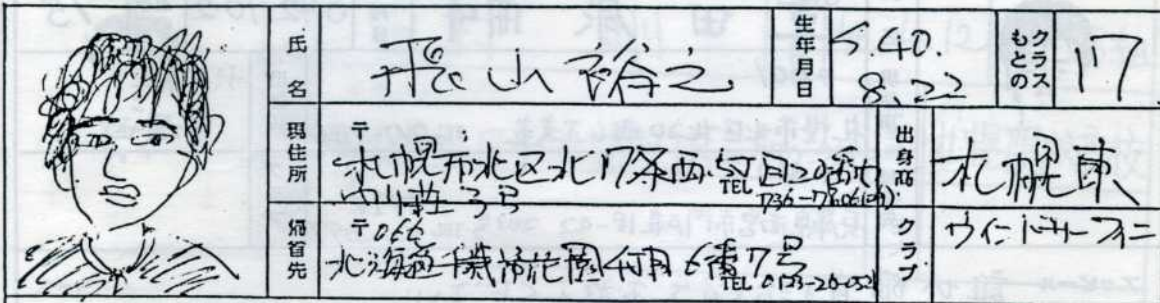 氏名 飛山裕之 生年月日 S.40. 8.22 もとのクラス 17
現住所 〒 札幌市北区北17条西5丁目20番地
TEL 736-
号
出身高 札幌東
帰省先 〒066
北海道千歳市花園4丁目6番7号
TEL 0123-26-0521
クラブ ウィンドサーフィン